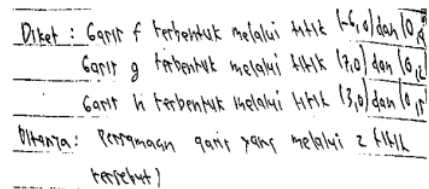 Diket : Garis f terbentuk melalui titik (-6,0) dan (0,
Garis g terbentuk melalui titik (7,0) dan (0,
Garis h terbentuk melalui titik (3,0) dan (0,
Ditanya: Persamaan garis yang melalui 2 titik
tersebut)